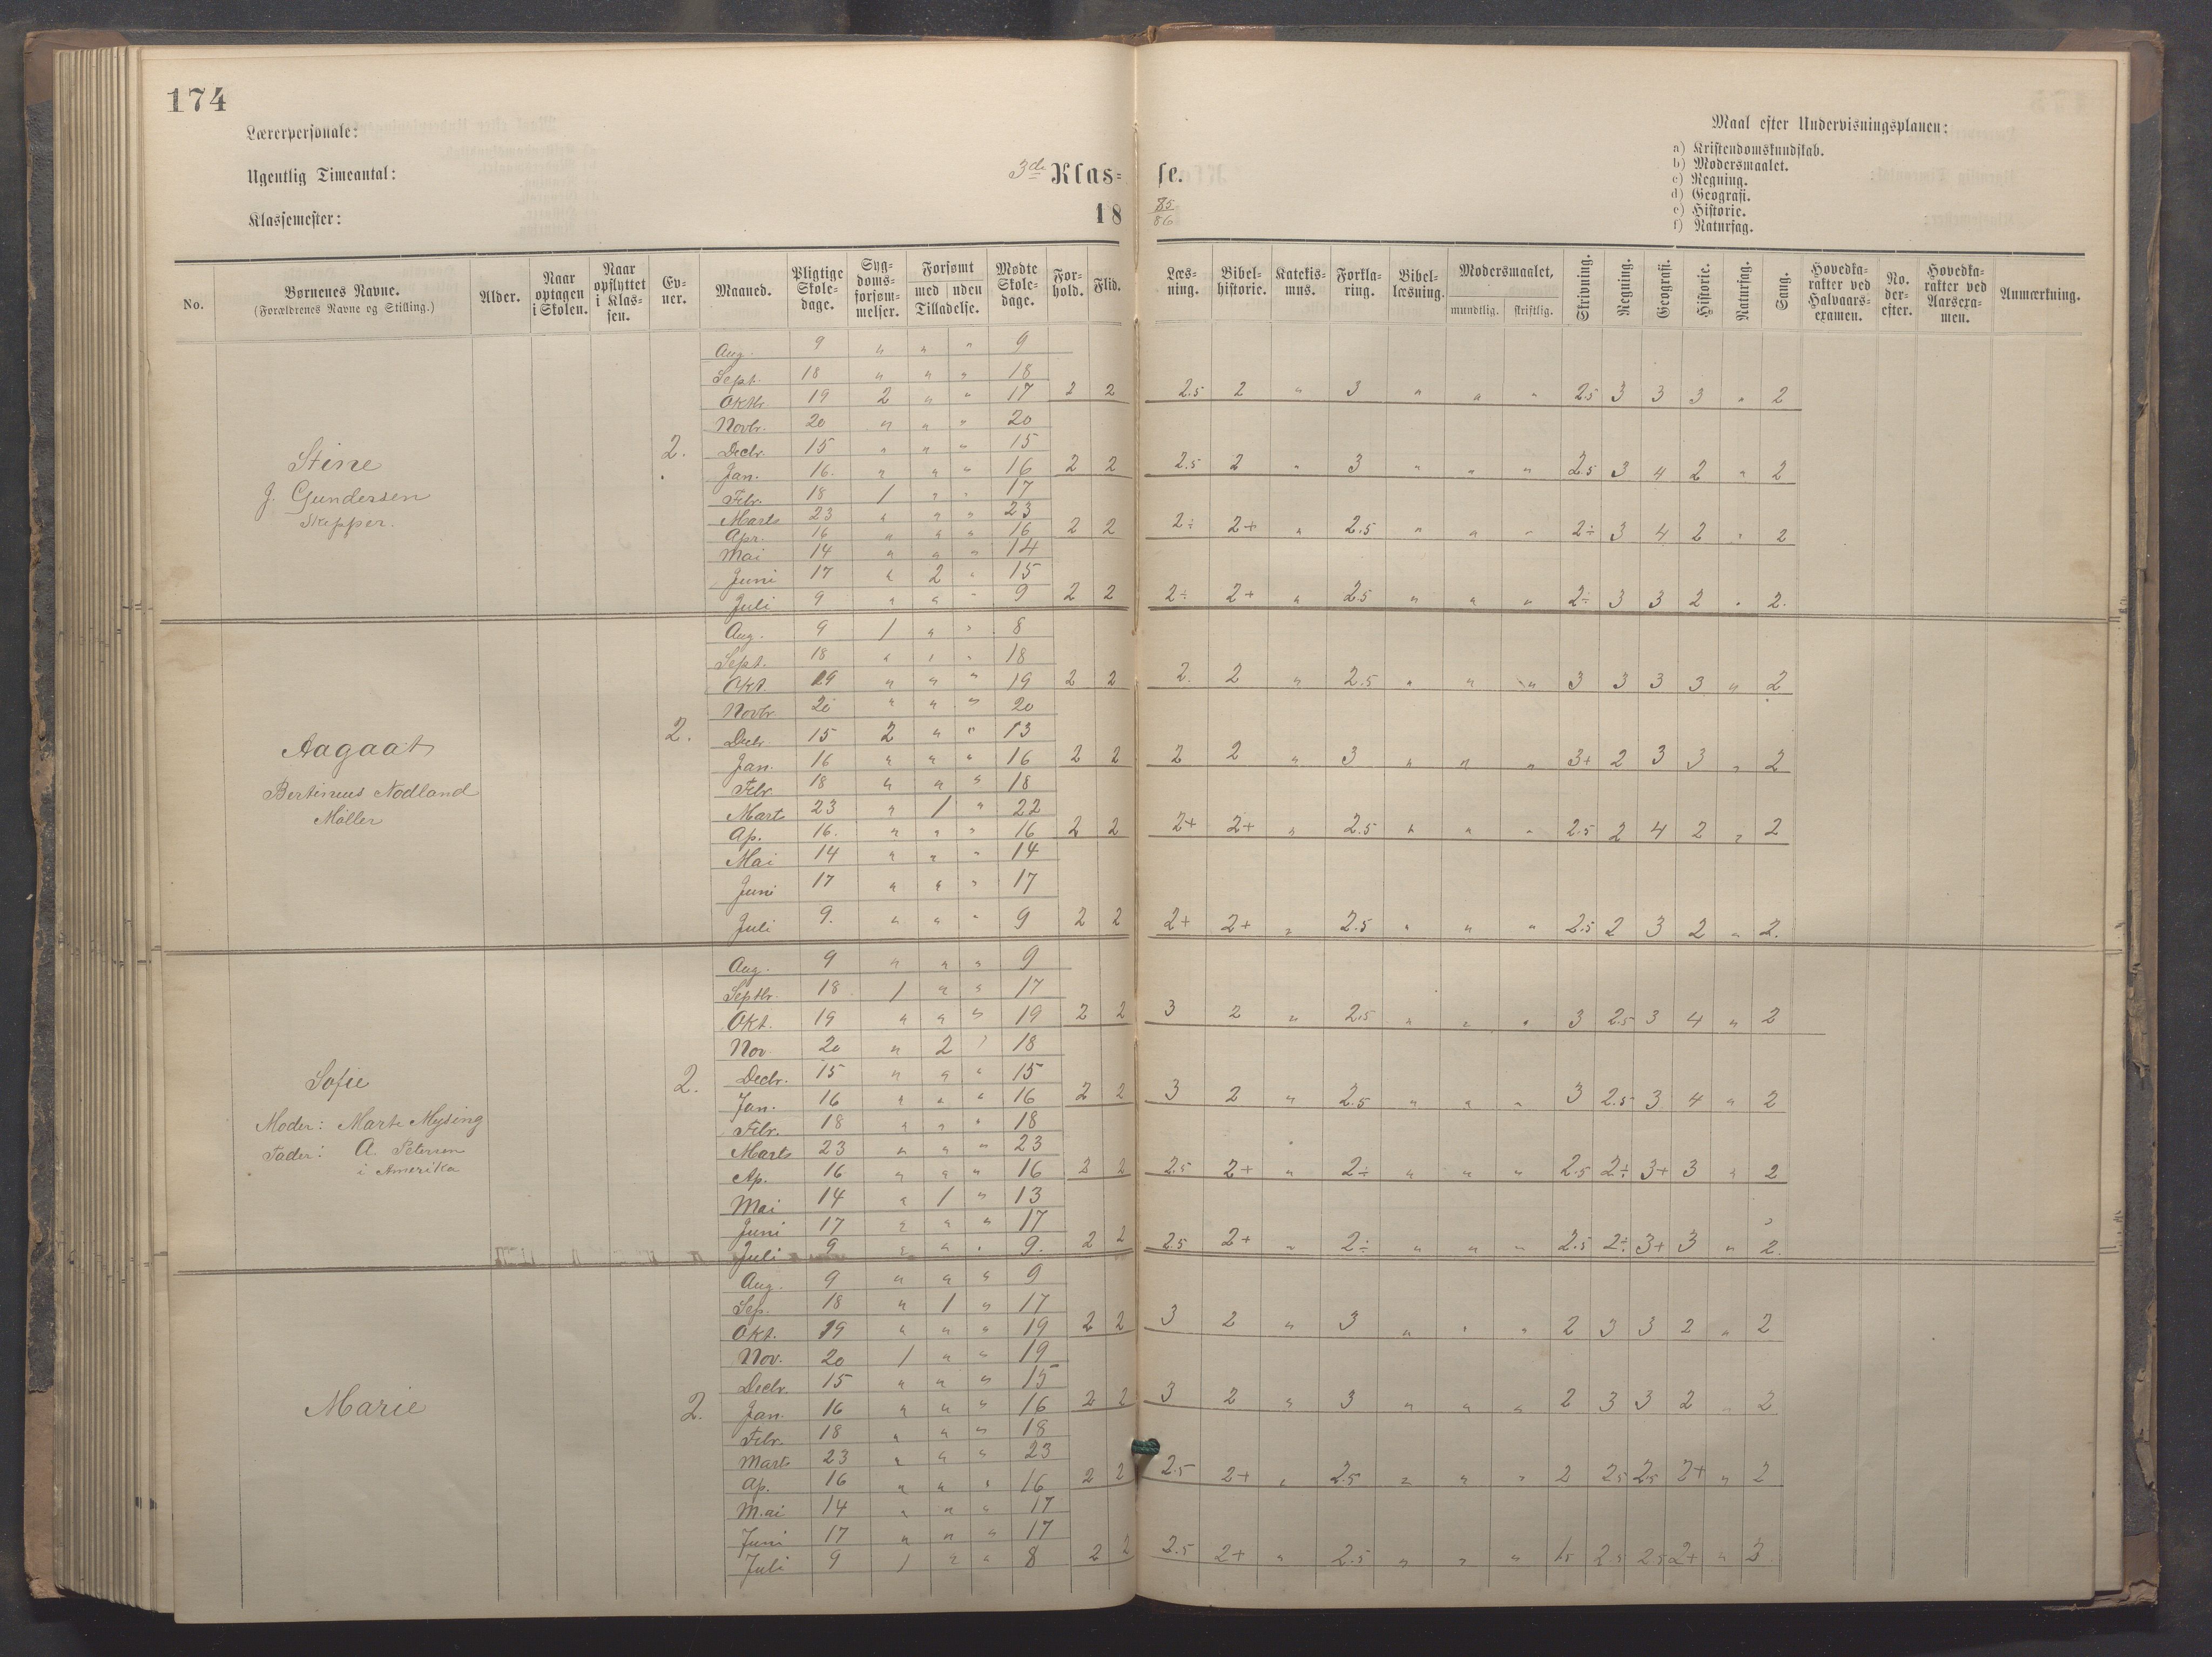 174
Lærerpersonale:
Ugentlig Timeantal:
Klassemester:
3de Klasse.
18 85/86
Maal efter Undervisningsplanen:
a) Kristendomskundskab.
b) Modersmaalet.
c) Regning.
d) Geografi.
e) Historie.
f) Naturfag.
No. | Børnenes Navne. (Forældrenes Navne og Stilling.) | Alder. | Naar optagen i Skolen. | Naar opflyttet i Klassen. | Evner. | Maaned. | Pligtige Skoledage. | Sygdomsforsømmelser. | Forsømt med uden Tilladelse. | Mødte Skoledage. | Forhold. | Flid. | Læsning. | Bibelhistorie. | Katekismus. | Forklaring. | Bibellæsning. | Modersmaalet, mundtlig. skriftlig. | Skrivning. | Regning. | Geografi. | Historie. | Naturfag. | Sang. | Hovedkarakter ved Halvaarsexamen. | No. derefter. | Hovedkarakter ved Aarsexamen. | Anmærkning.
Stine
J. Gundersen
Skipper.
2.
Aug. 9 " " " 9
Sept. 18 " " " 18
Oktbr 19 2 " " 17 2 2 2.5 2 " 3 " " " 2.5 3 3 3 " 2
Novbr. 20 " " " 20
Decbr. 15 " " " 15
Jan. 16. " " " 16 2 2 2.5 2 " 3 " " " 2.5 3 4 2 " 2
Febr. 18 1 " " 17
Marts 23 " " " 23
Apr. 16 " " " 16 2 2 2÷ 2+ " 2.5 " " " 2÷ 3 4 2 " 2
Mai 14 " " " 14
Juni 17 " 2 " 15
Juli 9 " " " 9 2 2 2÷ 2+ " 2.5 " " " 2÷ 3 3 2 " 2.
Aagaat
Bertinius Nodland
Møller
2.
Aug. 9 1 " " 8
Sept. 18 " " " 18
Okt. 19 " " " 19 2 2 2. 2 " 2.5 " " " 3 3 3 3 " 2
Novbr 20 " " " 20
Decbr. 15 2 " " 13
Jan. 16 " " " 16 2 2 2 2 " 3 " " " 3+ 2 3 3 " 2
Febr. 18 " " " 18
Marts 23 " 1 " 22
Ap. 16. " " " 16 2 2 2+ 2+ " 2.5 " " " 2.5 2 4 2 " 2
Mai 14 " " " 14
Juni 17 " " " 17
Juli 9. " " " 9 2 2 2+ 2+ " 2.5 " " " 2.5 2 3 2 " 2.
Sofie
Moder: Marte Mysing
Fader: A. Petersen
i Amerika
2.
Aug. 9 " " " 9
Septbr. 18 1 " " 17
Okt. 19 " " " 19 2 2 3 2 " 2.5 " " " 3 2.5 3 4 " 2
Nov 20 " 2 " 18
Decbr. 15 " " " 15
Jan. 16 " " " 16 2 2 3 2 " 2.5 " " " 3 2.5 3 4 " 2
Febr. 18 " " " 18
Marts 23 " " " 23
Ap. 16 " " " 16 2 2 2.5 2+ " 2÷ " " " 2.5 2÷ 3+ 3 " 2
Mai 14 " 1 " 13
Juni 17 " " " 17
Juli 9 " " " 9. 2 2 2.5 2+ " 2÷ " " " 2.5 2÷ 3+ 3 " 2.
Marie
2.
Aug. 9 " " " 9
Sep. 18 " 1 " 17
Okt. 19 " " " 19 2 2 3 2 " 3 " " " 2 3 3 2 " 2
Nov. 20 1 " " 19
Decbr. 15 " " " 15
Jan. 16 " " " 16 2 2 3 2 " 3 " " " 2 3 3 2 " 2
Febr. 18 " " " 18
Marts 23 " " " 23
Ap. 16 " " " 16 2 2 2.5 2+ " 2.5 " " " 2 2.5 2.5 2+ " 2
Mai 14 " " " 17
Juni 17 " " " 17
Juli 9 1 " " 8 2 2 2.5 2+ " 2.5 " " " 1.5 2.5 2.5 2+ "